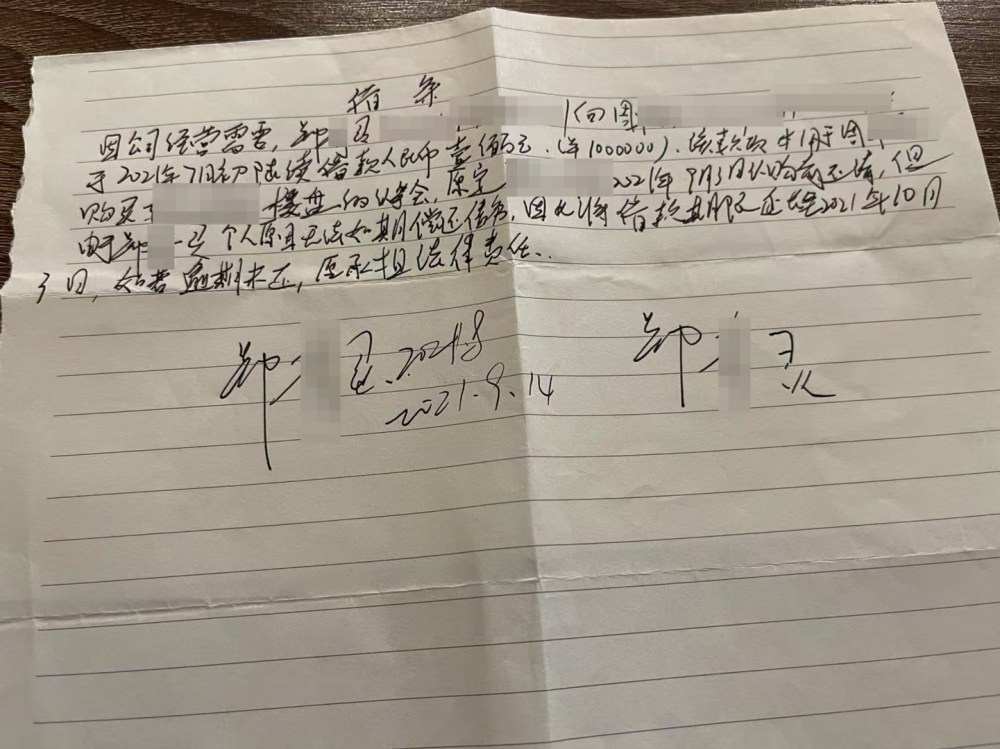 借条
因公司经营需要,郑 向周
于2021年7月初陆续借款人民币壹佰万元.(¥1000000).该款项中用于周
购买了 楼盘的 原定 2021年9月 日以前还清,但
由于郑 个人原因无法如期偿还债务,因此将借款期限延长至2021年10月
3日,如若逾期未还,愿承担法律责任.
郑 郑
2021.9.14